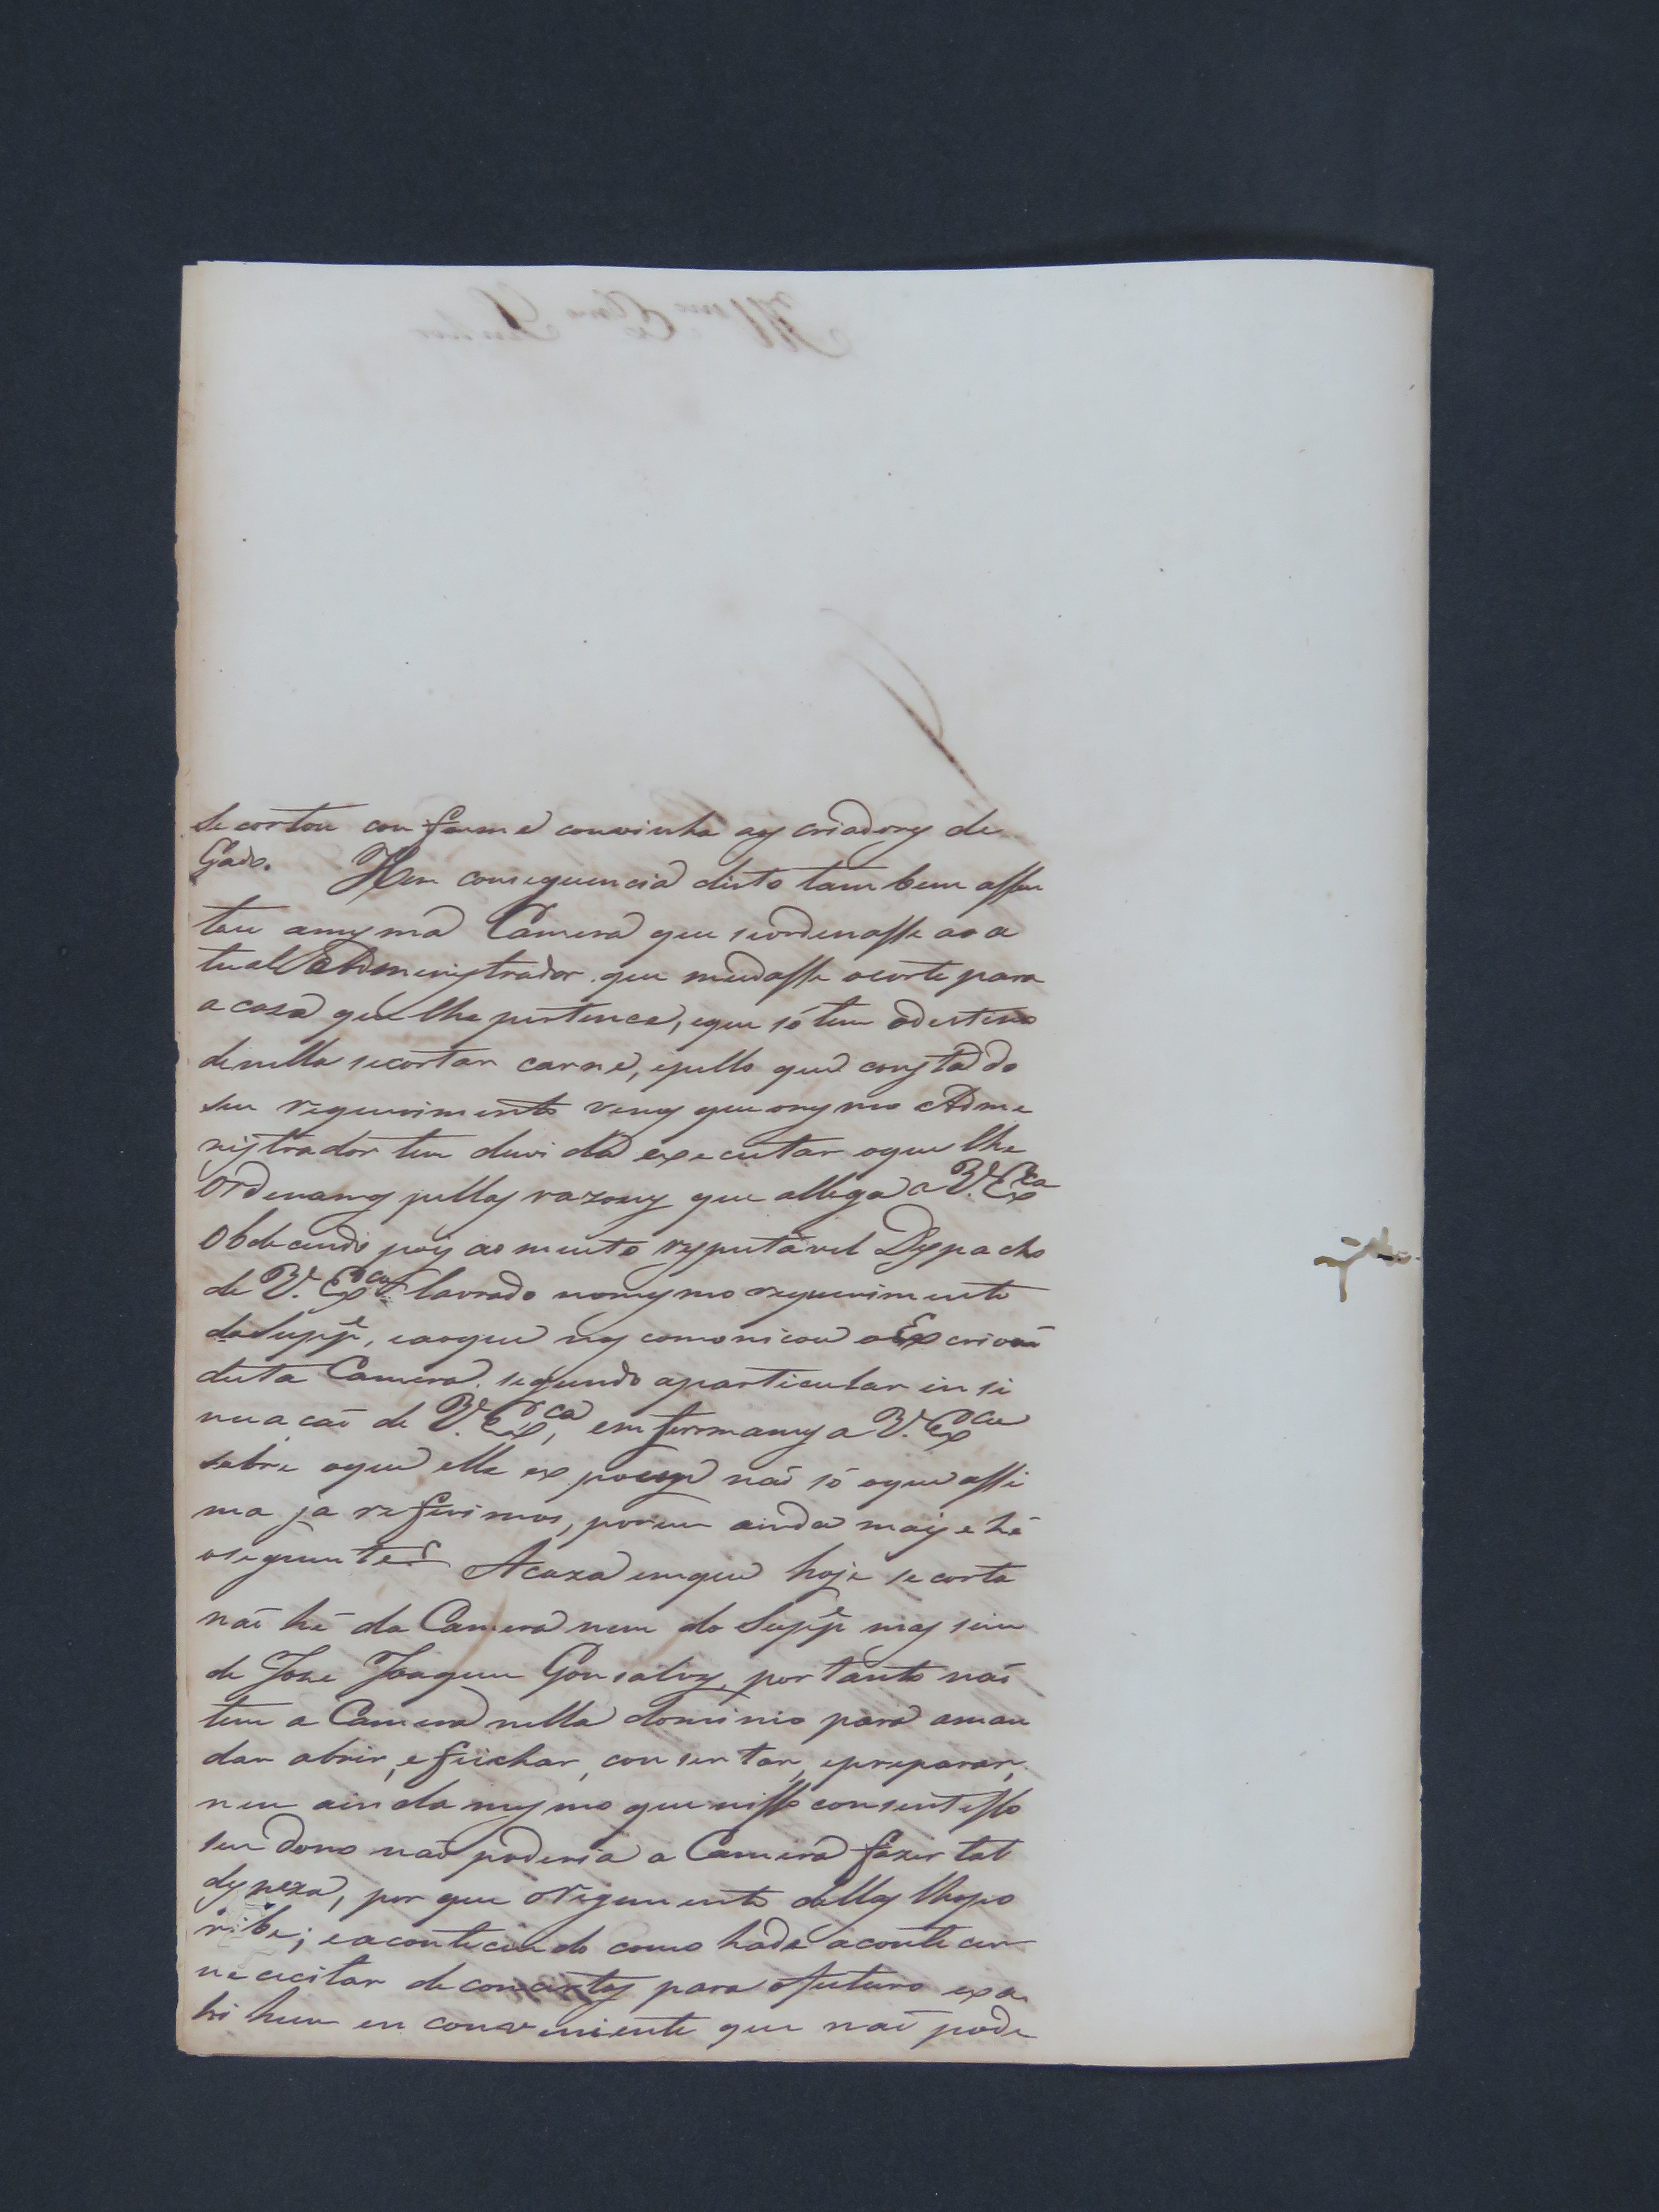 se cortou conforme convinha aos criadores de
Gado. Hem consequencia disto tambem assen
tou amesma Camera que seordenasse ao a
tual Administrador que mudasse ocorte para
a casa que lhe pertence, eque só tem odestino
denella secortar carne, epello que consta do
seu requerimento vemos que omesmo Adme
nistrador tem duvida executar oque lhe
Ordenamos pellas razoens que allega a V. Exca
Obdecendo pois ao muito respeitavel Despacho
de V. Exca lavrado nomesmo requerimento
do Suppe, eaoque nos comonicou o Escrivaõ
desta Camera segundo aparticular insi
nuaçaõ de V. Exca, emformamos a V. Exca
sobre oque elle expoem naõ só oque assi
ma ja referimos, porem ainda mais e hé
oseguinte Acaza emque hoje se corta
naõ hé da Camera nem do Suppe mas sim
de Jose Joaquim Gonsalves, portanto naõ
tem a Camera nella dominio para aman
dar abrir, e feichar, consertar, epreparar,
nem ainda mesmo que nisso consentisse
seu dono naõ poderia a Camera fazer tal
despeza, por que oregimento dellas lhopro
ribe; eacontecendo como hade acontecer
necicitar deconcertos para ofuturo exa
hi hum enconveniente que naõ pode